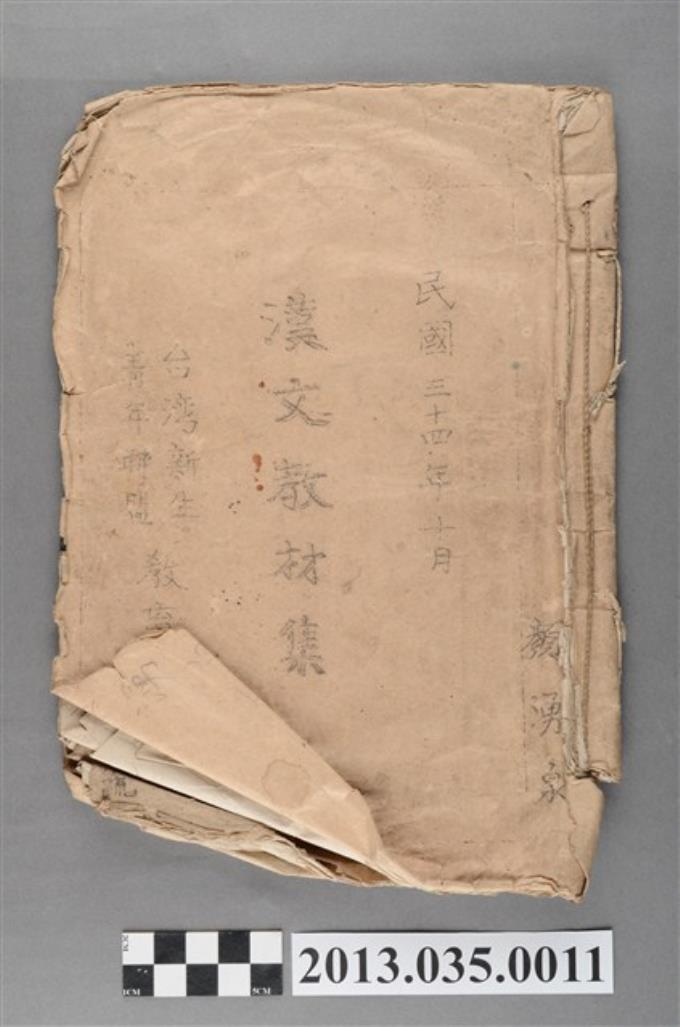 顏湧泉
民國三十四年十月
漢文教材集
台湾新生
青年聯盟
教育
2013.035.0011
1CM
5CM